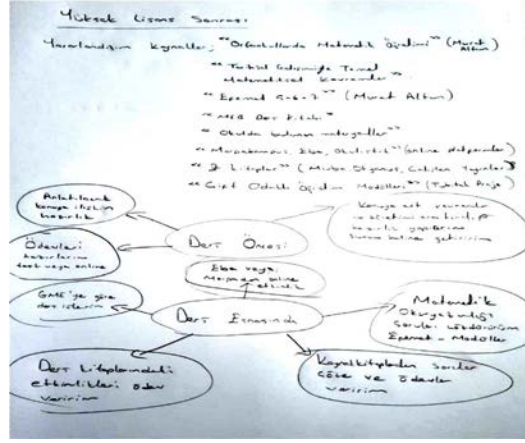 Yüksek Lisans Sonrası
Yararlandığım Kaynaklar; "Ortaokullarda Matematik Öğretimi" (Murat Altun)
" Tarihsel Gelişimiyle Temel
Matematiksel Kavramlar "
" Epemat 5-6-7 " (Murat Altun)
" MEB Ders Kitabı "
" Okulda bulunan materyaller "
" Morpakampüs, Eba, Okulistik " (online platformlar)
" Z kitaplar " (
" Çift Odaklı Öğretim Modelleri " (Tübitak Proje)
Anlatılacak
konuya ilişkin
hazırlık
Ders Öncesi
Konuya ait
hazırlık yaparım
sunu haline getiririm
Ödevleri
hazırlarım
test veya online
Eba veya
Morpadan online
etkinlik
GME'ye göre
ders işlerim
Ders Esnasında
Matematik
Okuryazarlığı
soruları çözdürürüm
Epemat - Modeller
Ders kitaplarındaki
etkinlikleri ödev
veririm
Kaynak kitaplardan sorular
çözer ve ödevler
veririm